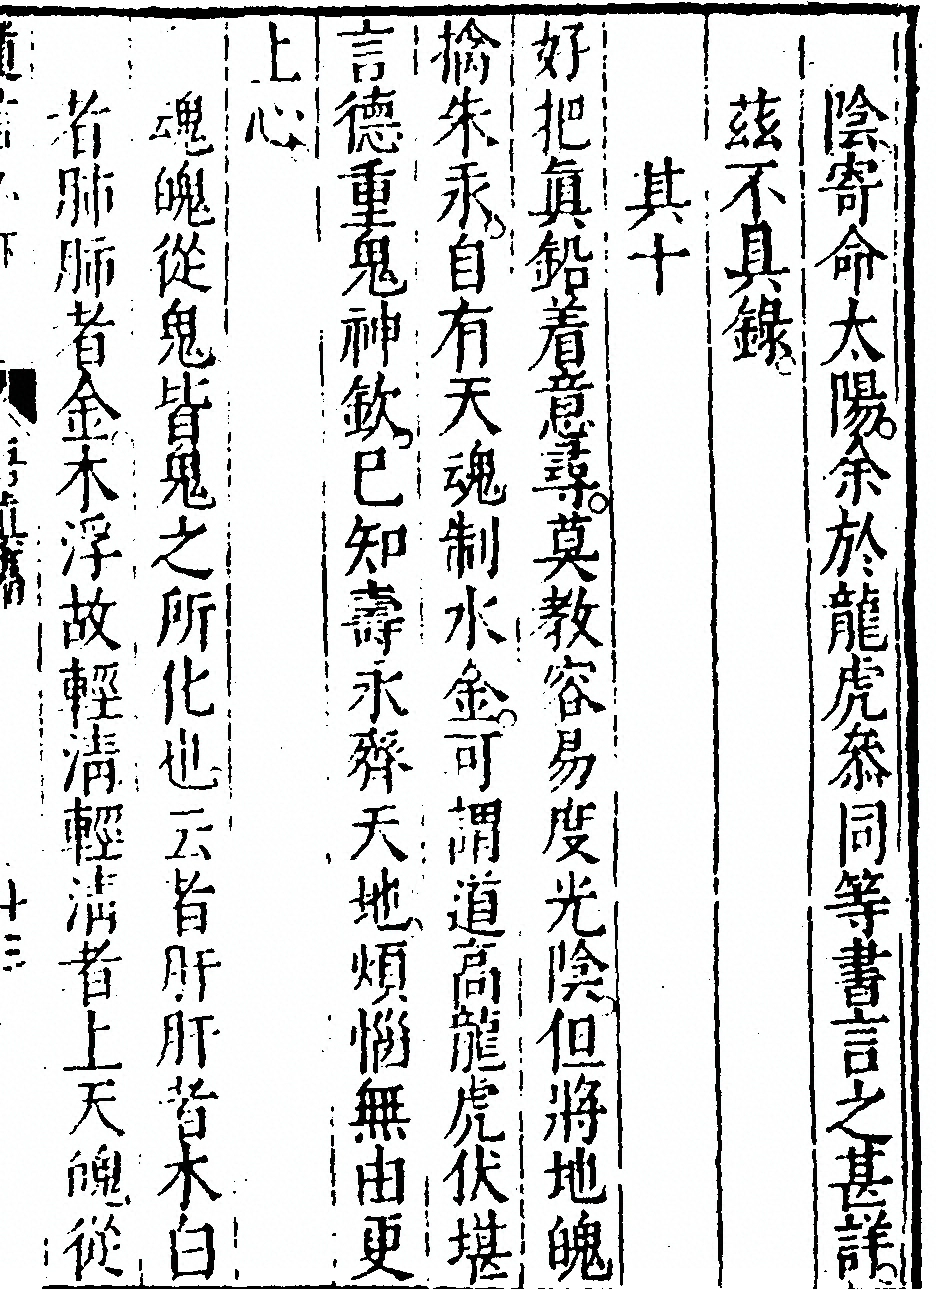 陰寄命太陽余於龍虎叅同等書言之甚詳
茲不具錄
其十
好把眞鉛着意尋莫教容易度光陰但將地魄
擒朱汞自有天魂制水金可謂道高龍虎伏堪
言德重鬼神欽已知壽永齊天地煩惱無由更
上心
魂魄從鬼皆鬼之所化也云者肝肝者木白
者肺肺者金木浮故輕淸輕淸者上天魄從
十三